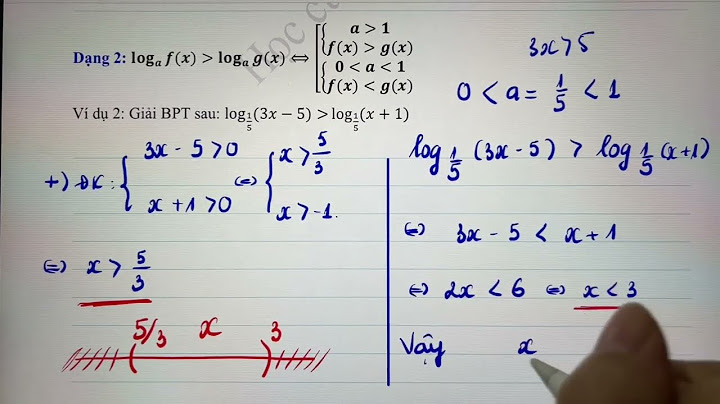 Học c
Dạng 2: logₐ f(x) > logₐ g(x) ⇔ [ { a > 1
f(x) > g(x)
{ 0 < a < 1
f(x) < g(x)
3x > 5
0 < a = 1/5 < 1
Ví dụ 2: Giải BPT sau: log_{1/5}(3x − 5) > log_{1/5}(x + 1)
+) ĐK: { 3x - 5 > 0
x + 1 > 0
⇔ { x > 5/3
x > -1.
⇔ x > 5/3
5/3 x 3
log_{1/5} (3x - 5) > log_{1/5} (x + 1)
⇔ 3x - 5 < x + 1
⇔ 2x < 6 ⇔ x < 3
Vậy x